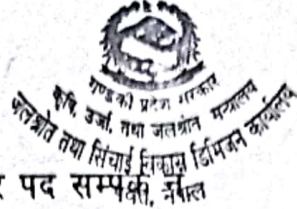 गण्डकी प्रदेश सरकार
कृषि, उर्जा, तथा जलश्रोत मन्त्रालय
जलश्रोत तथा सिंचाई विकास डिभिजन कार्यालय
नेपाल
पद सम्पर्क